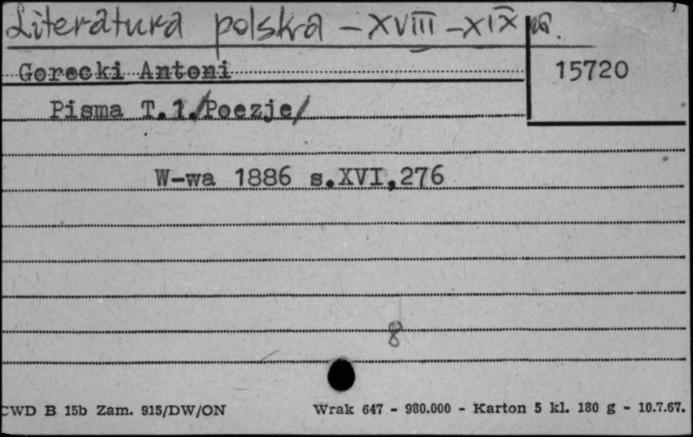 Literatura polska – XVIII – XIX w.
Gorecki Antoni
15720
Pisma T.1./Poezje/
W-wa 1886 s.XVI,276
8
CWD B 15b Zam. 915/DW/ON
Wrak 647 - 980.000 - Karton 5 kl. 180 g - 10.7.67.